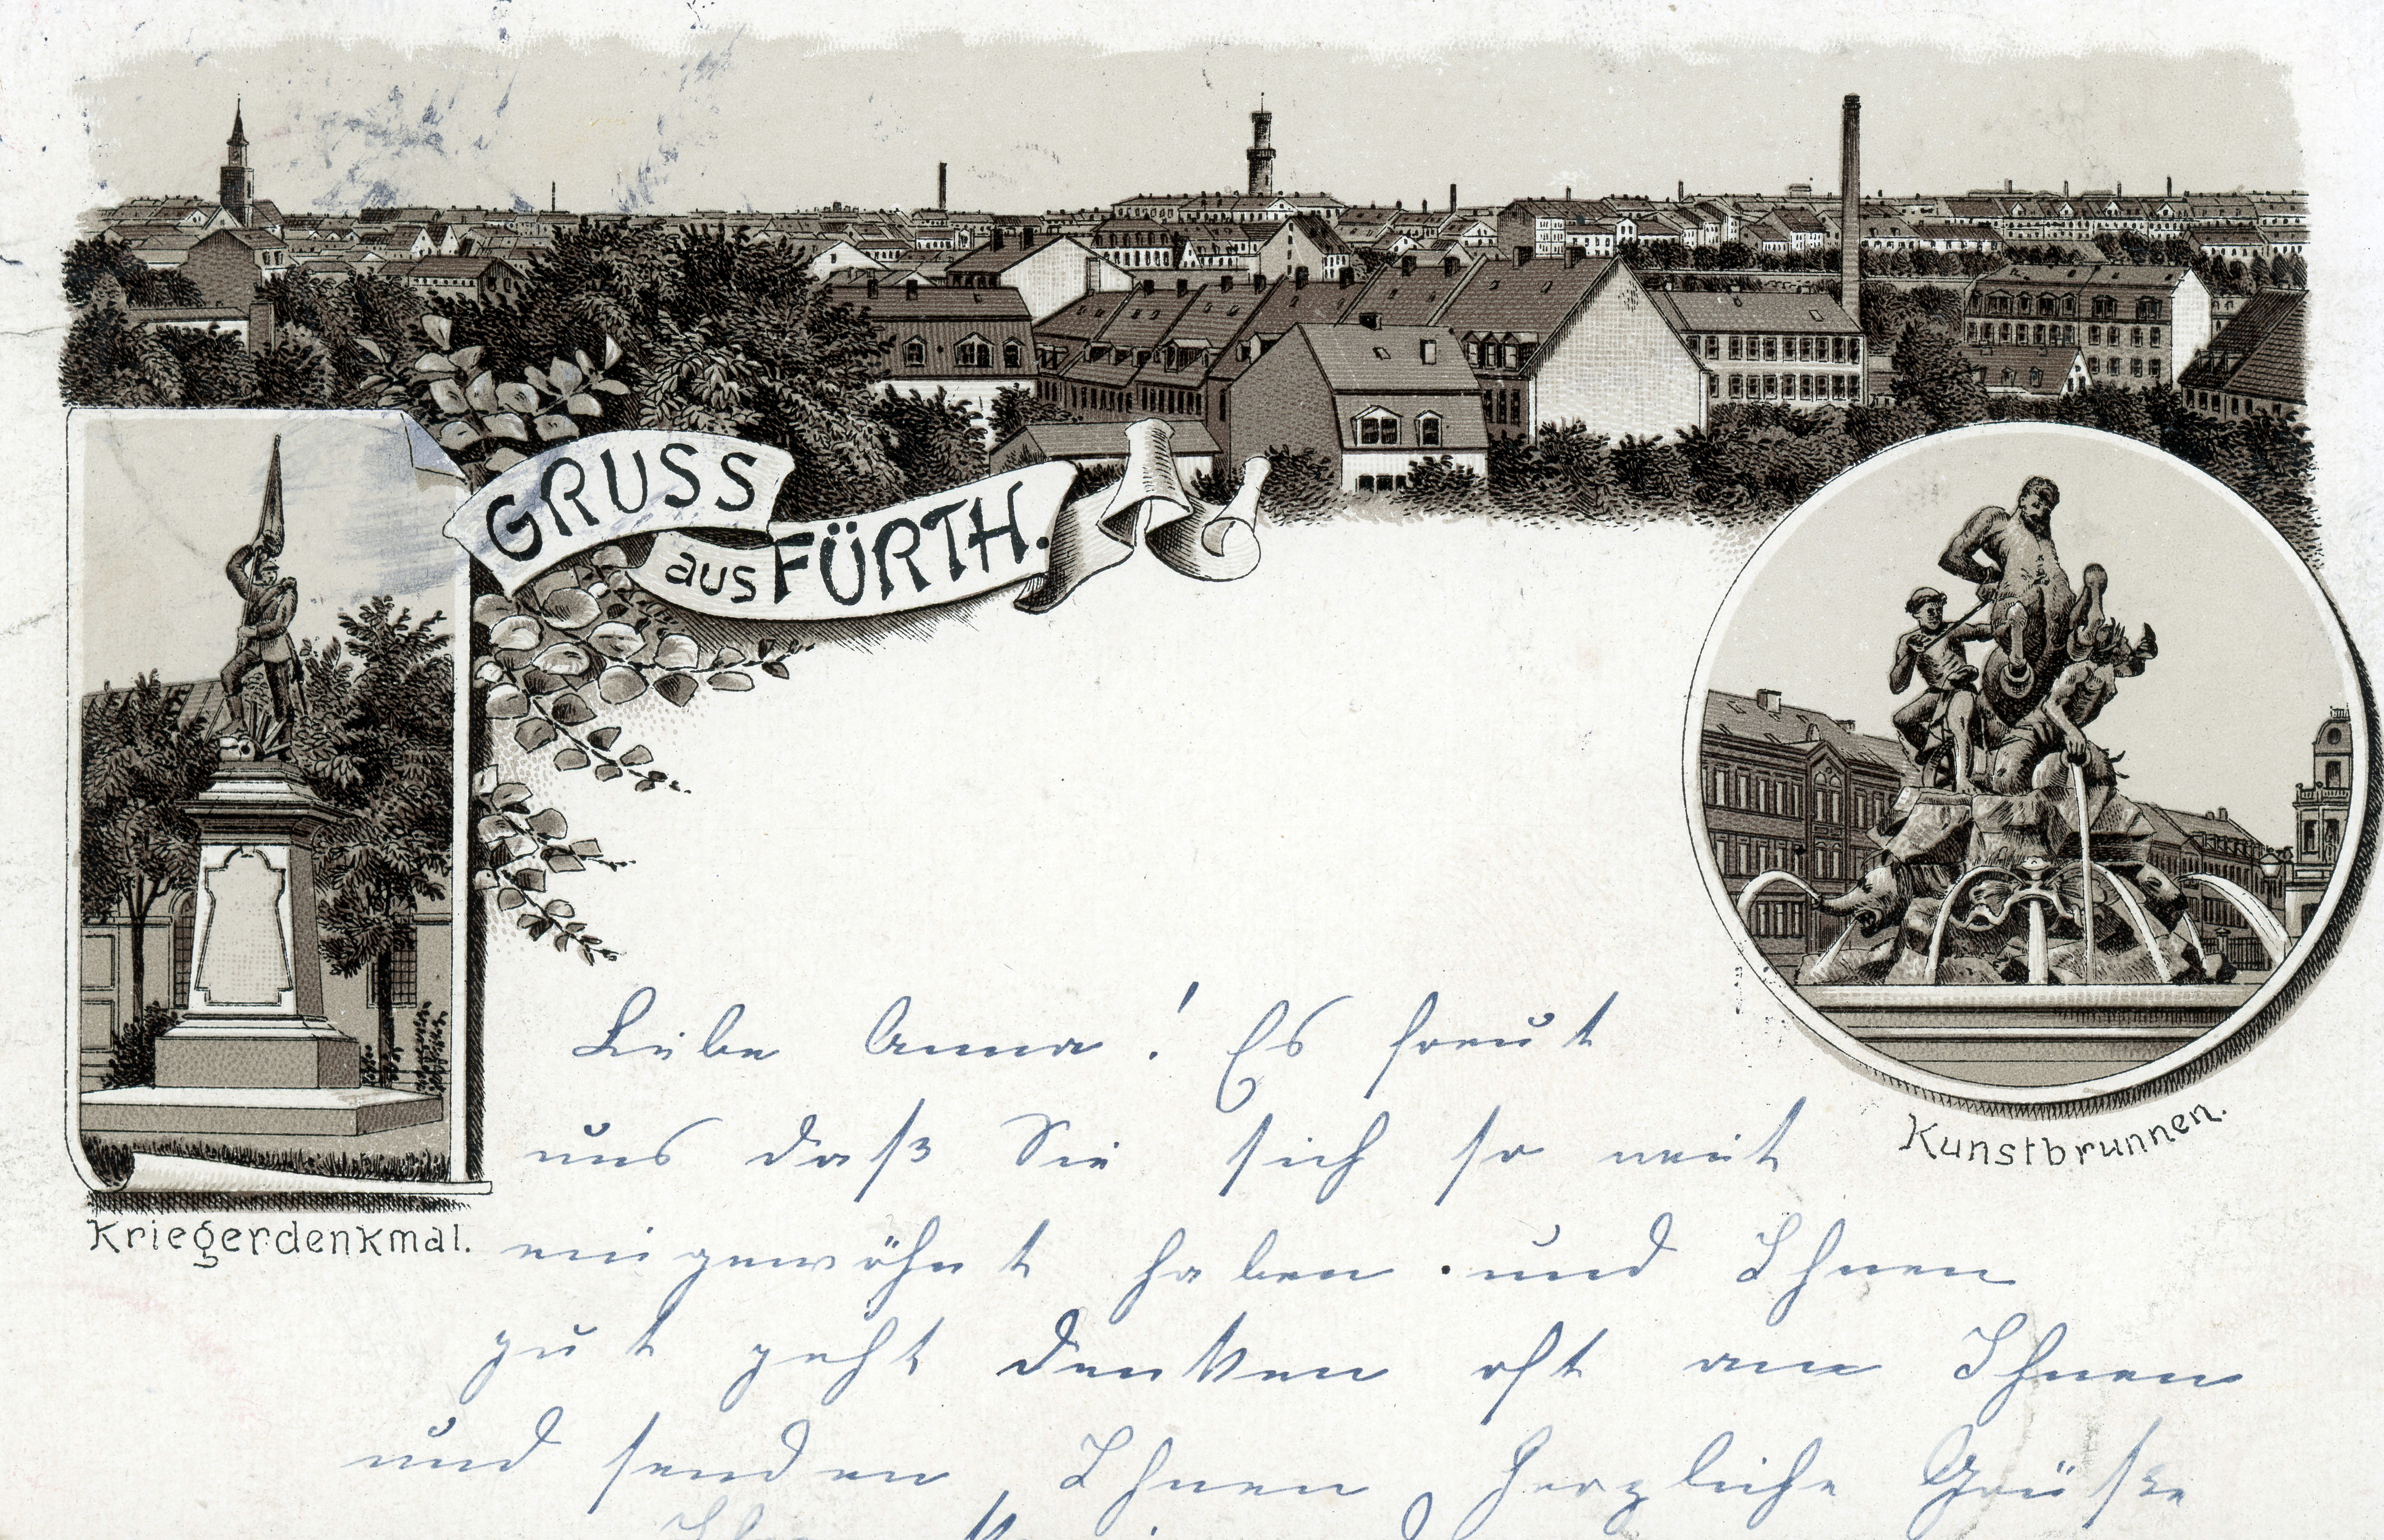 GRUSS
aus FÜRTH.
Kriegerdenkmal.
Kunstbrunnen.
Liebe Anna! Es freut
uns daß Sie sich so weit
eingewöhnt haben und Ihnen
gut geht denken oft an Ihnen
und senden Ihnen herzliche Grüße